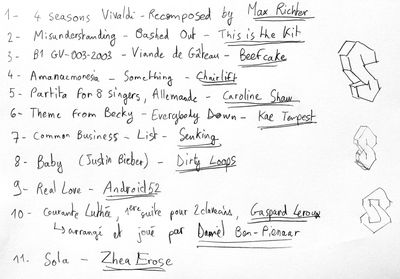 1- 4 seasons Vivaldi - Recomposed by Max Richter
2- Misunderstanding - Bashed Out - This is the Kit
3- B1 GV-003-2003 - Viande de Gâteau - Beefcake
4- Amanaemonesia - Something - Chairlift
5- Partita for 8 singers, Allemande - Caroline Shaw
6- Theme from Becky - Everybody Down - Kae Tempest
7- Common Business - List - Senking
8- Baby (Justin Bieber) - Dirty Loops
9- Real Love - Android52
10- Courante Luthée, 1ère suite pour 2 clavecins, Gaspard Leroux
↳ arrangé et joué par Daniel Ben-Pienaar
11. Sola - Zhea Erose